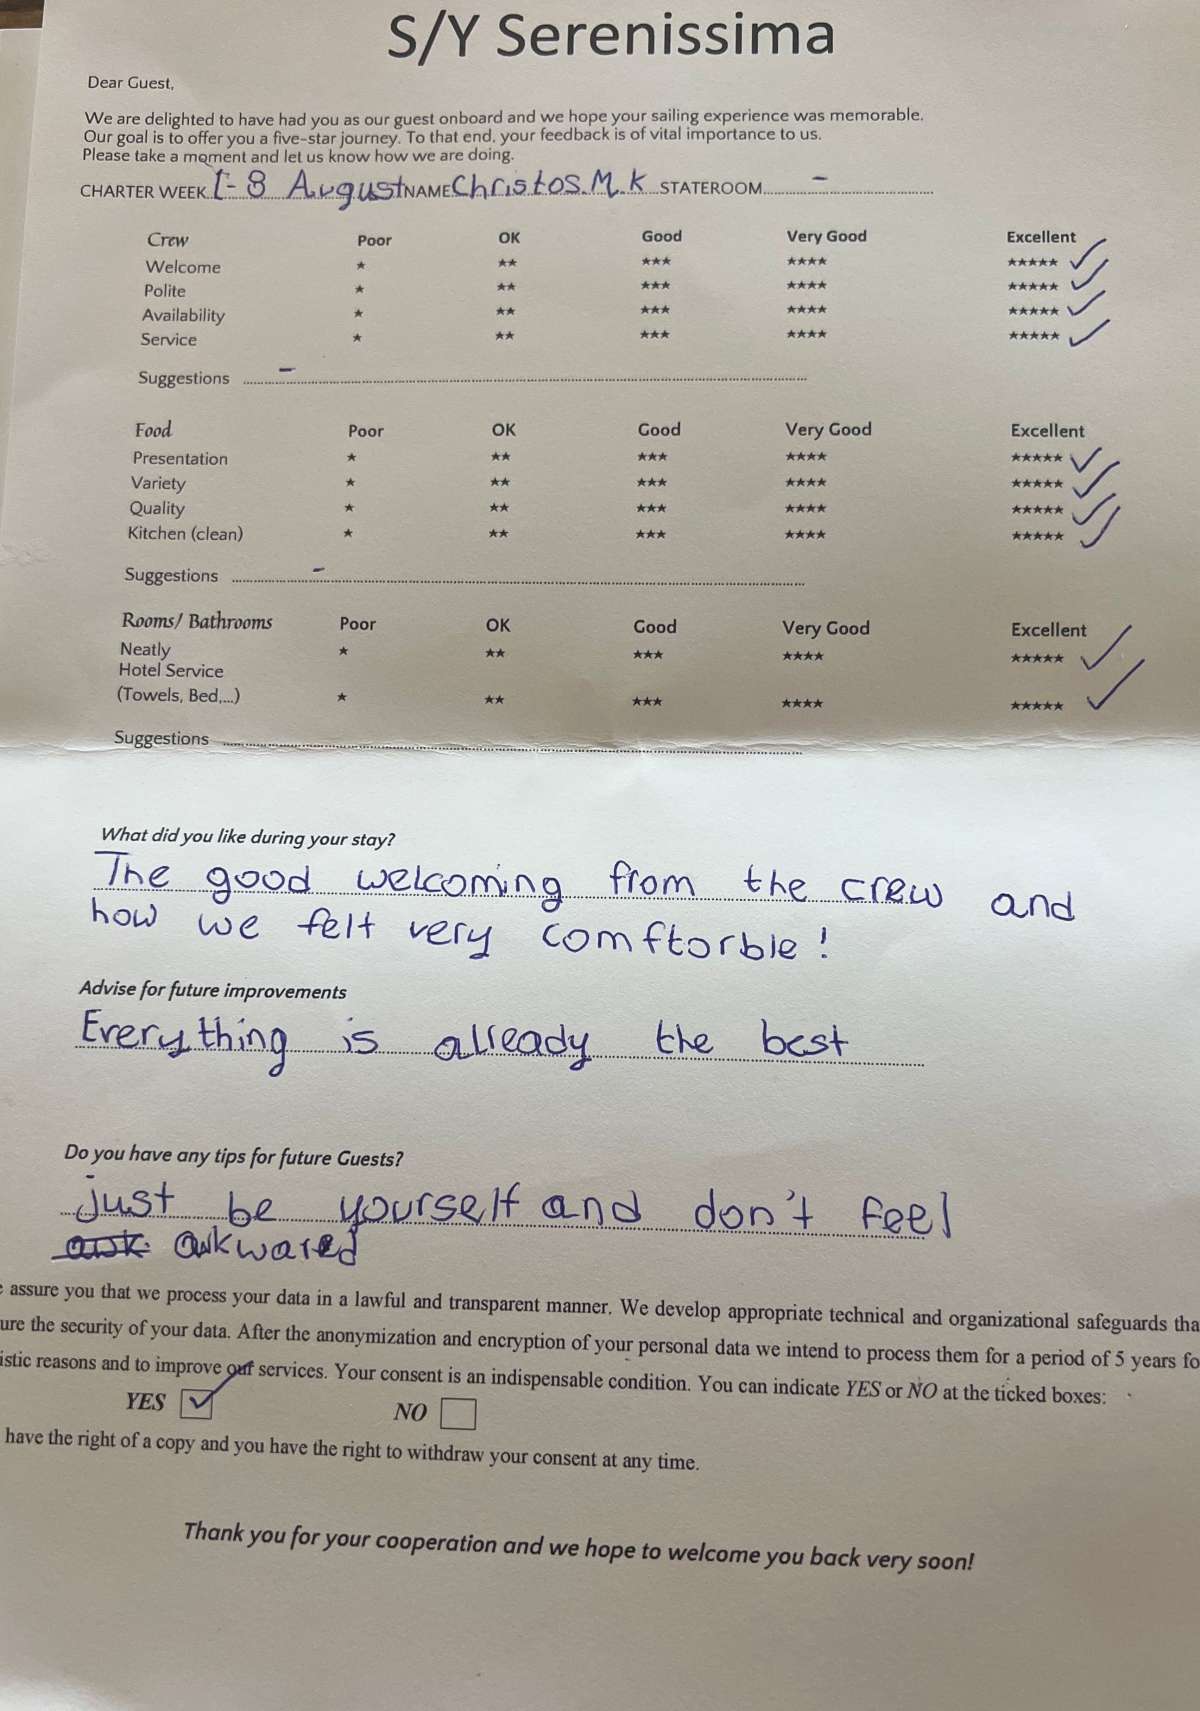 S/Y Serenissima
Dear Guest,
We are delighted to have had you as our guest onboard and we hope your sailing experience was memorable.
Our goal is to offer you a five-star journey. To that end, your feedback is of vital importance to us.
Please take a moment and let us know how we are doing.
CHARTER WEEK 1-8 August NAME Christos.M.K STATEROOM -
Crew Poor OK Good Very Good Excellent
Welcome ★ ★★ ★★★ ★★★★ ★★★★★ ✓
Polite ★ ★★ ★★★ ★★★★ ★★★★★ ✓
Availability ★ ★★ ★★★ ★★★★ ★★★★★ ✓
Service ★ ★★ ★★★ ★★★★ ★★★★★ ✓
Suggestions -
Food Poor OK Good Very Good Excellent
Presentation ★ ★★ ★★★ ★★★★ ★★★★★ ✓
Variety ★ ★★ ★★★ ★★★★ ★★★★★ ✓
Quality ★ ★★ ★★★ ★★★★ ★★★★★ ✓
Kitchen (clean) ★ ★★ ★★★ ★★★★ ★★★★★ ✓
Suggestions -
Rooms/ Bathrooms Poor OK Good Very Good Excellent
Neatly ★ ★★ ★★★ ★★★★ ★★★★★ ✓
Hotel Service
(Towels, Bed,...) ★ ★★ ★★★ ★★★★ ★★★★★ ✓
Suggestions
What did you like during your stay?
The good welcoming from the crew and
how we felt very comftorble!
Advise for future improvements
Everything is already the best
Do you have any tips for future Guests?
just be yourself and don't feel
awkwared
assure you that we process your data in a lawful and transparent manner. We develop appropriate technical and organizational safeguards tha
ure the security of your data. After the anonymization and encryption of your personal data we intend to process them for a period of 5 years fo
istic reasons and to improve our services. Your consent is an indispensable condition. You can indicate YES or NO at the ticked boxes:
YES ✓ NO
have the right of a copy and you have the right to withdraw your consent at any time.
Thank you for your cooperation and we hope to welcome you back very soon!